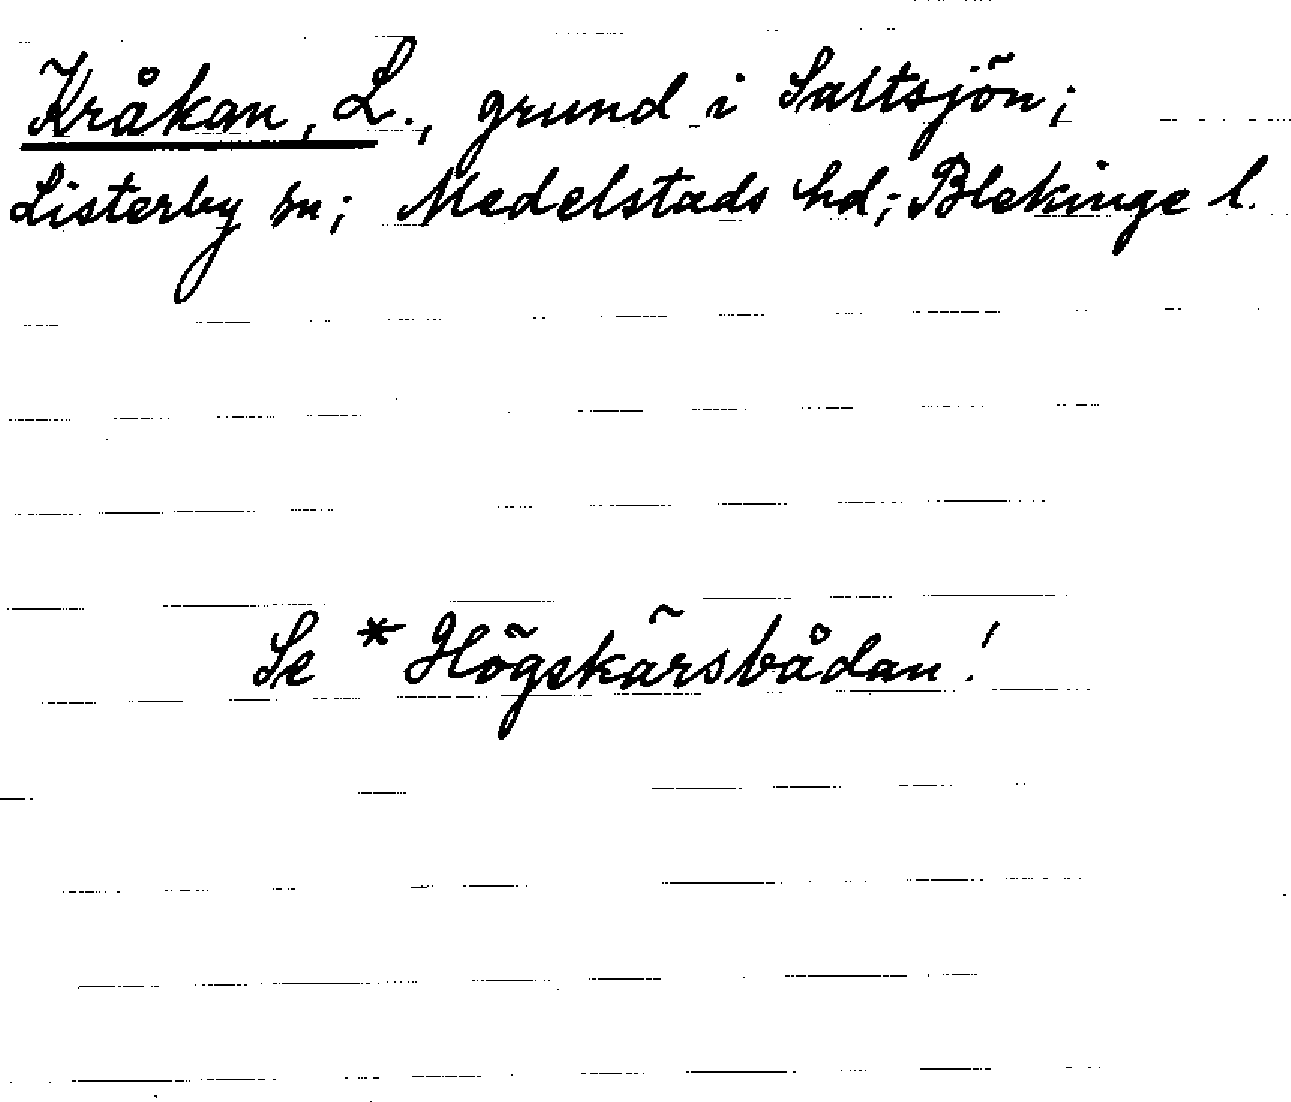 Kråkan, L., grund i Saltsjön;
Listerby sn; Medelstads hd; Blekinge l.
Se *Högskärsbådan!